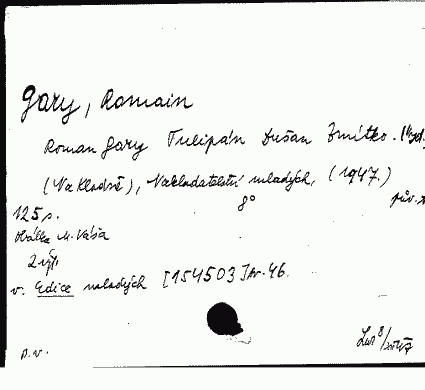 Gary, Romain
Roman Gary Tulipán Dušan Zmítko.
(Na Kladně), Nakladatelství mladých, (1947.)
8°
125 s.
Obálka M. Váša
2. výt.
v. Edice mladých [154503] Av-46.
p.v.